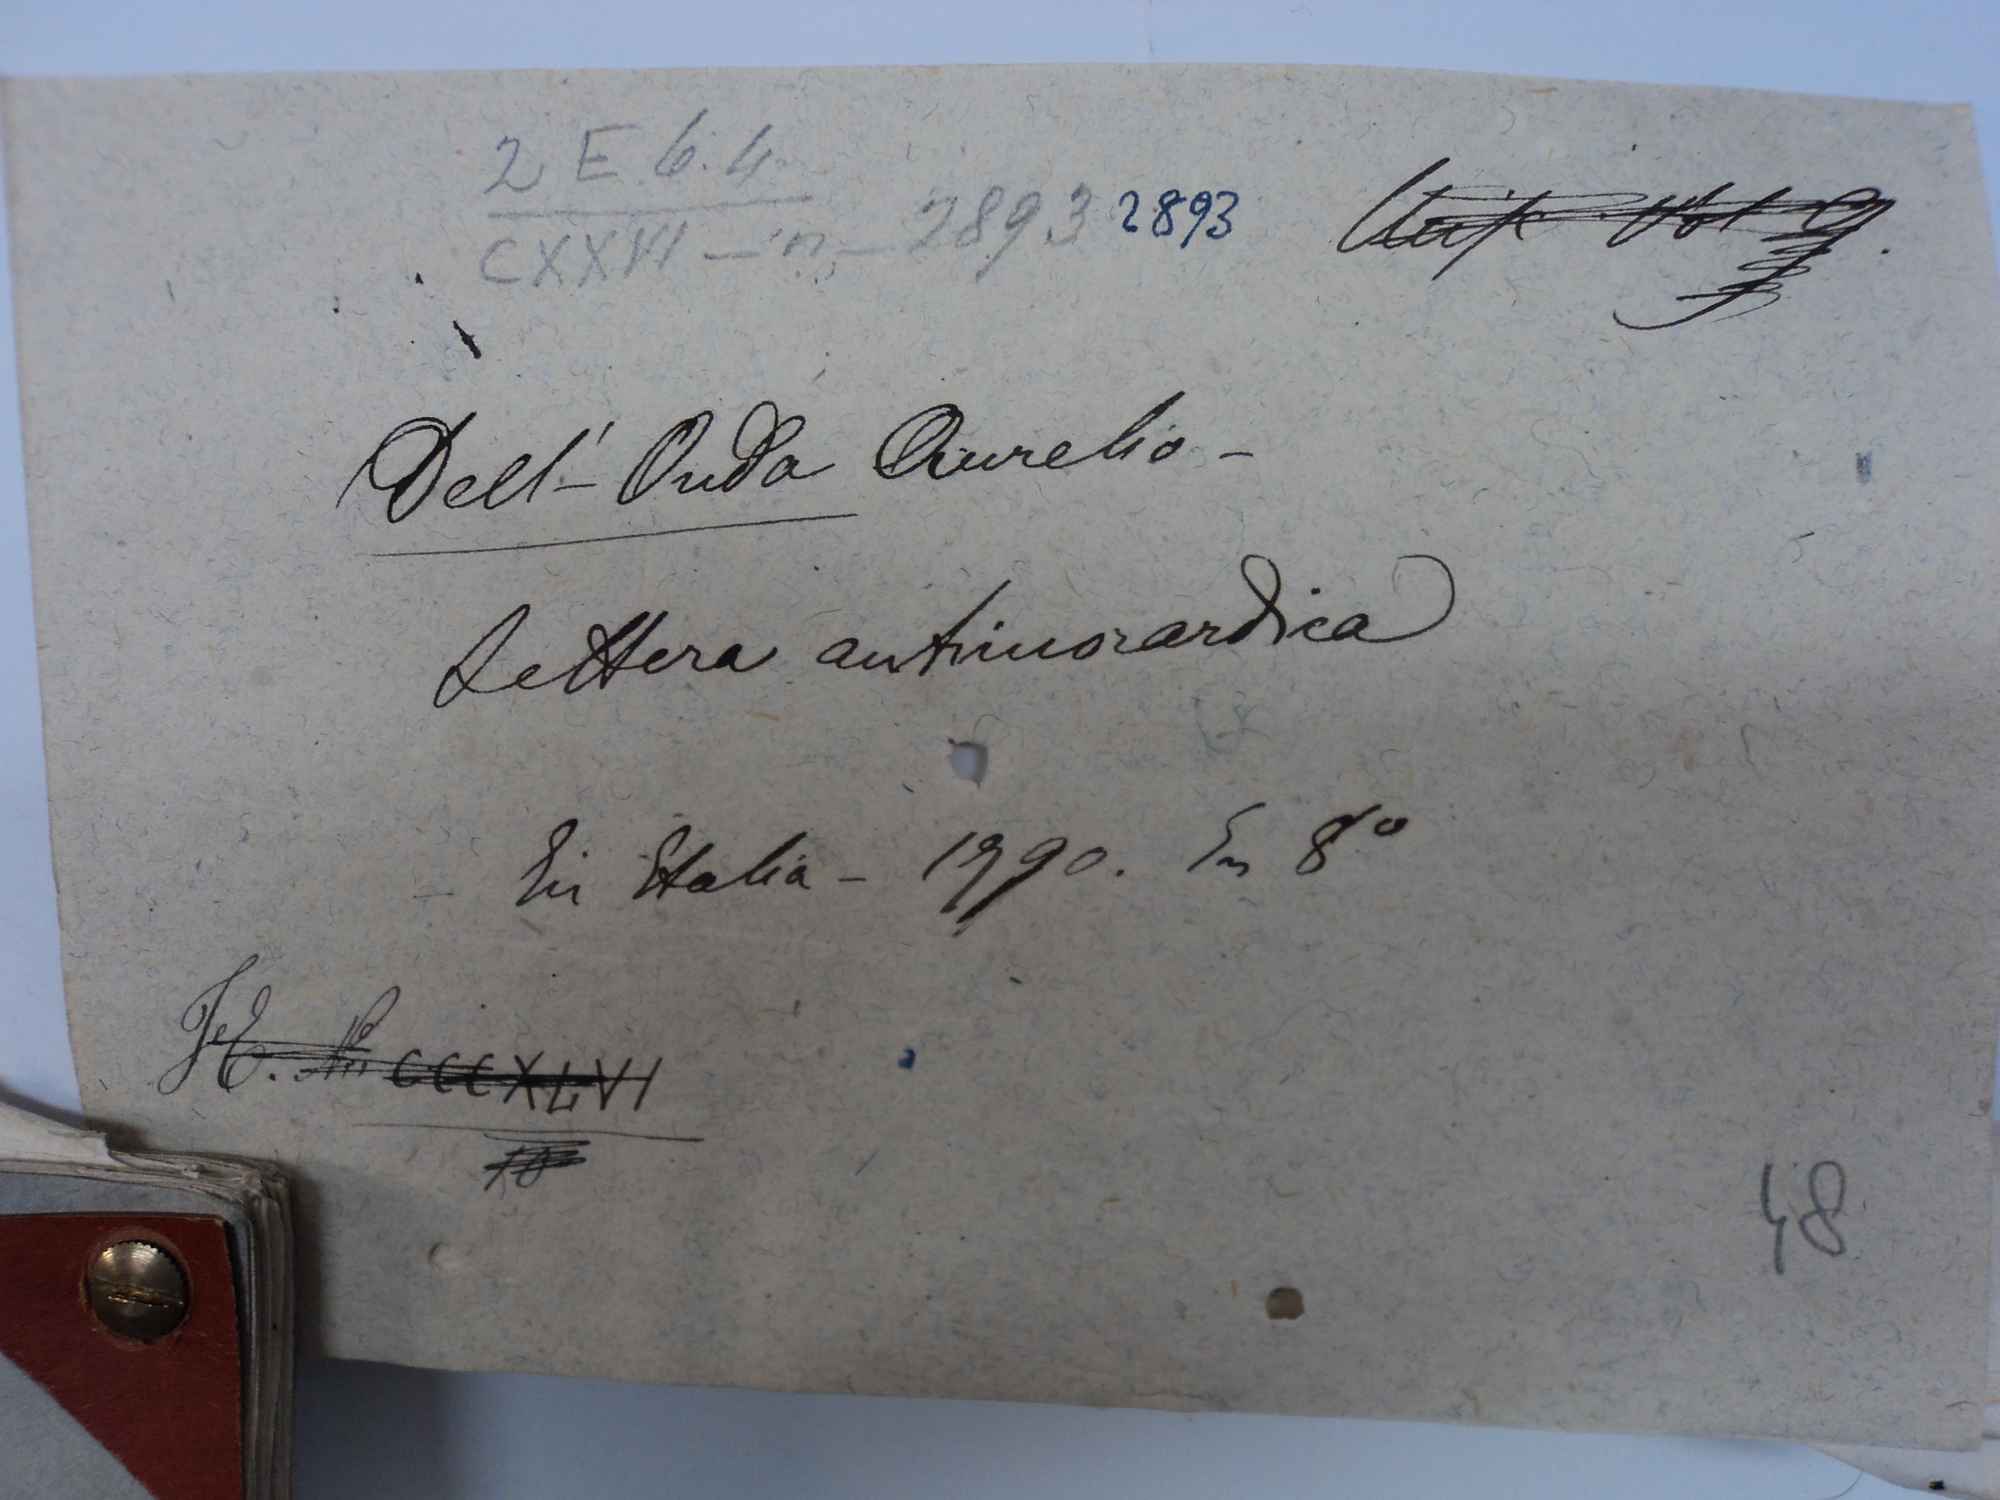 2 E. 6. 4.
CXXVI - n - 2893 2893
Dell'Onda Aurelio -
Lettera antimorardica
- In Italia - 1790. In 8º
CCCXLVI
18
48